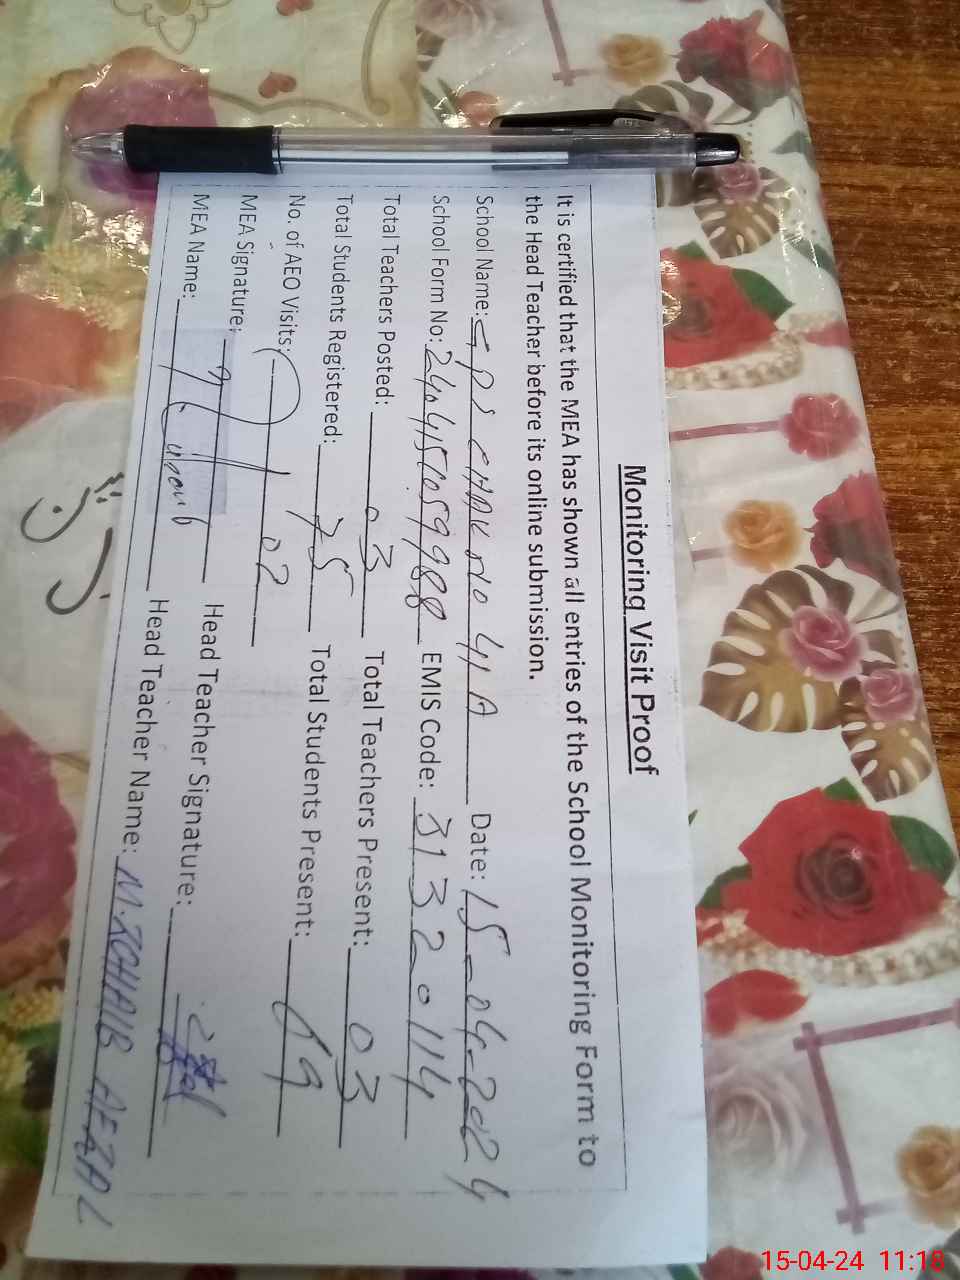 Monitoring Visit Proof
It is certified that the MEA has shown all entries of the School Monitoring Form to
the Head Teacher before its online submission.
School Name: GPS CHAK NO 41 A Date: 15-04-2024
School Form No: EMIS Code: 31320114
Total Teachers Posted: 03 Total Teachers Present: 03
Total Students Registered: 75 Total Students Present: 69
No. of AEO Visits: 02
MEA Signature: Head Teacher Signature:
MEA Name: Head Teacher Name: M. ZOHAIB AFZAL
15-04-24 11:18